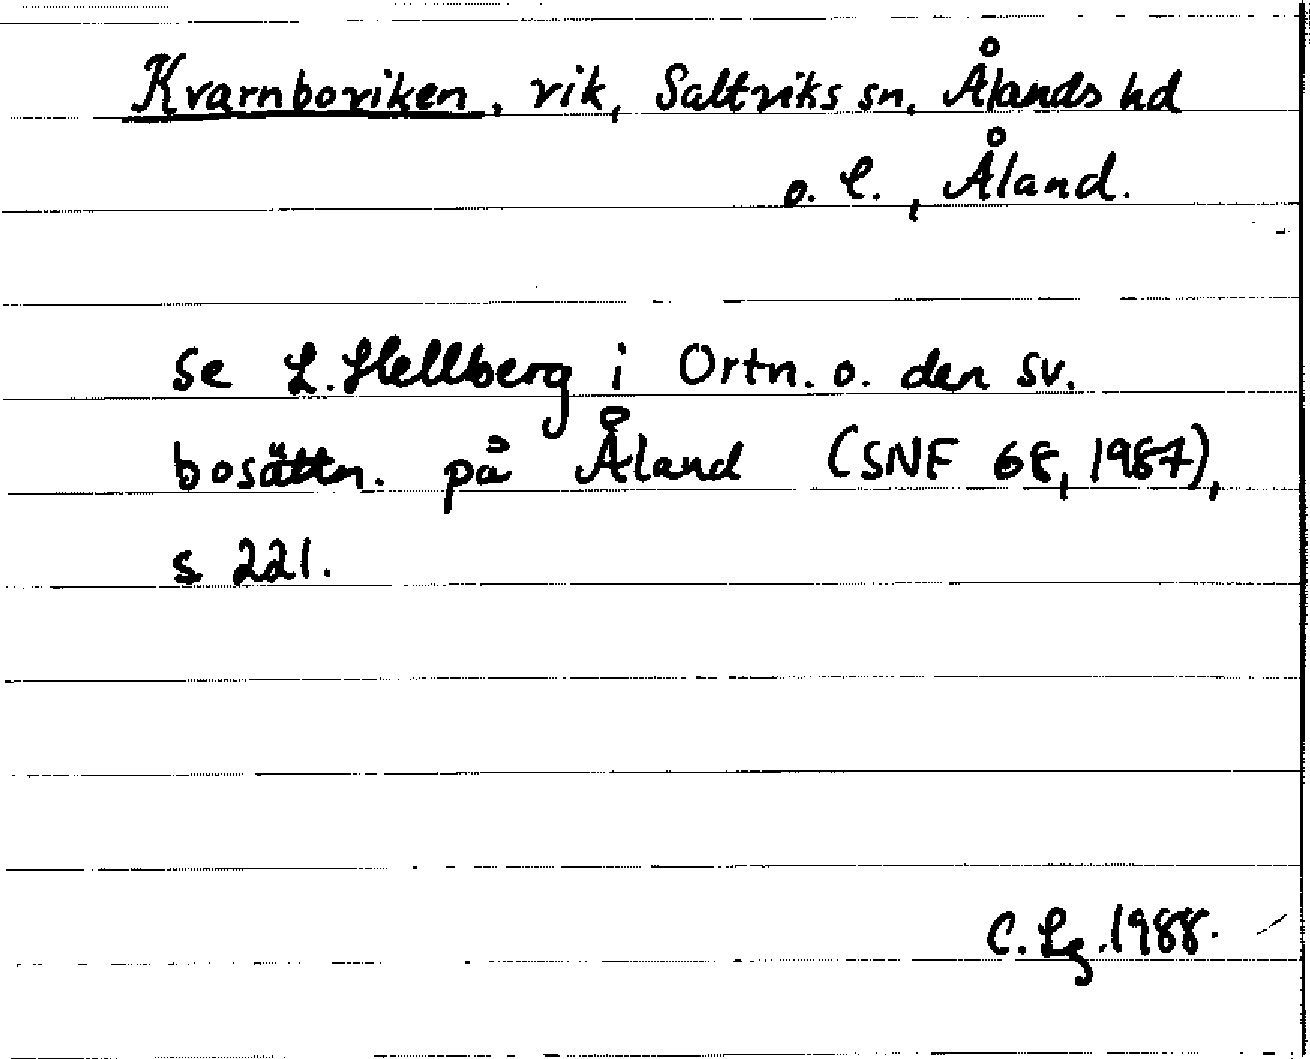 Kvarnboviken, vik, Saltviks sn, Ålands hd
o. l., Åland.
se L. Hellberg i Ortn. o. den sv.
bosättn. på Åland (SNF 68, 1987),
s 221.
C. Lg. 1988.